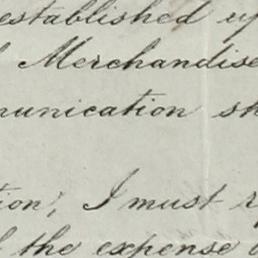 established up
Merchandise
munication sh
tion, I must
the expense